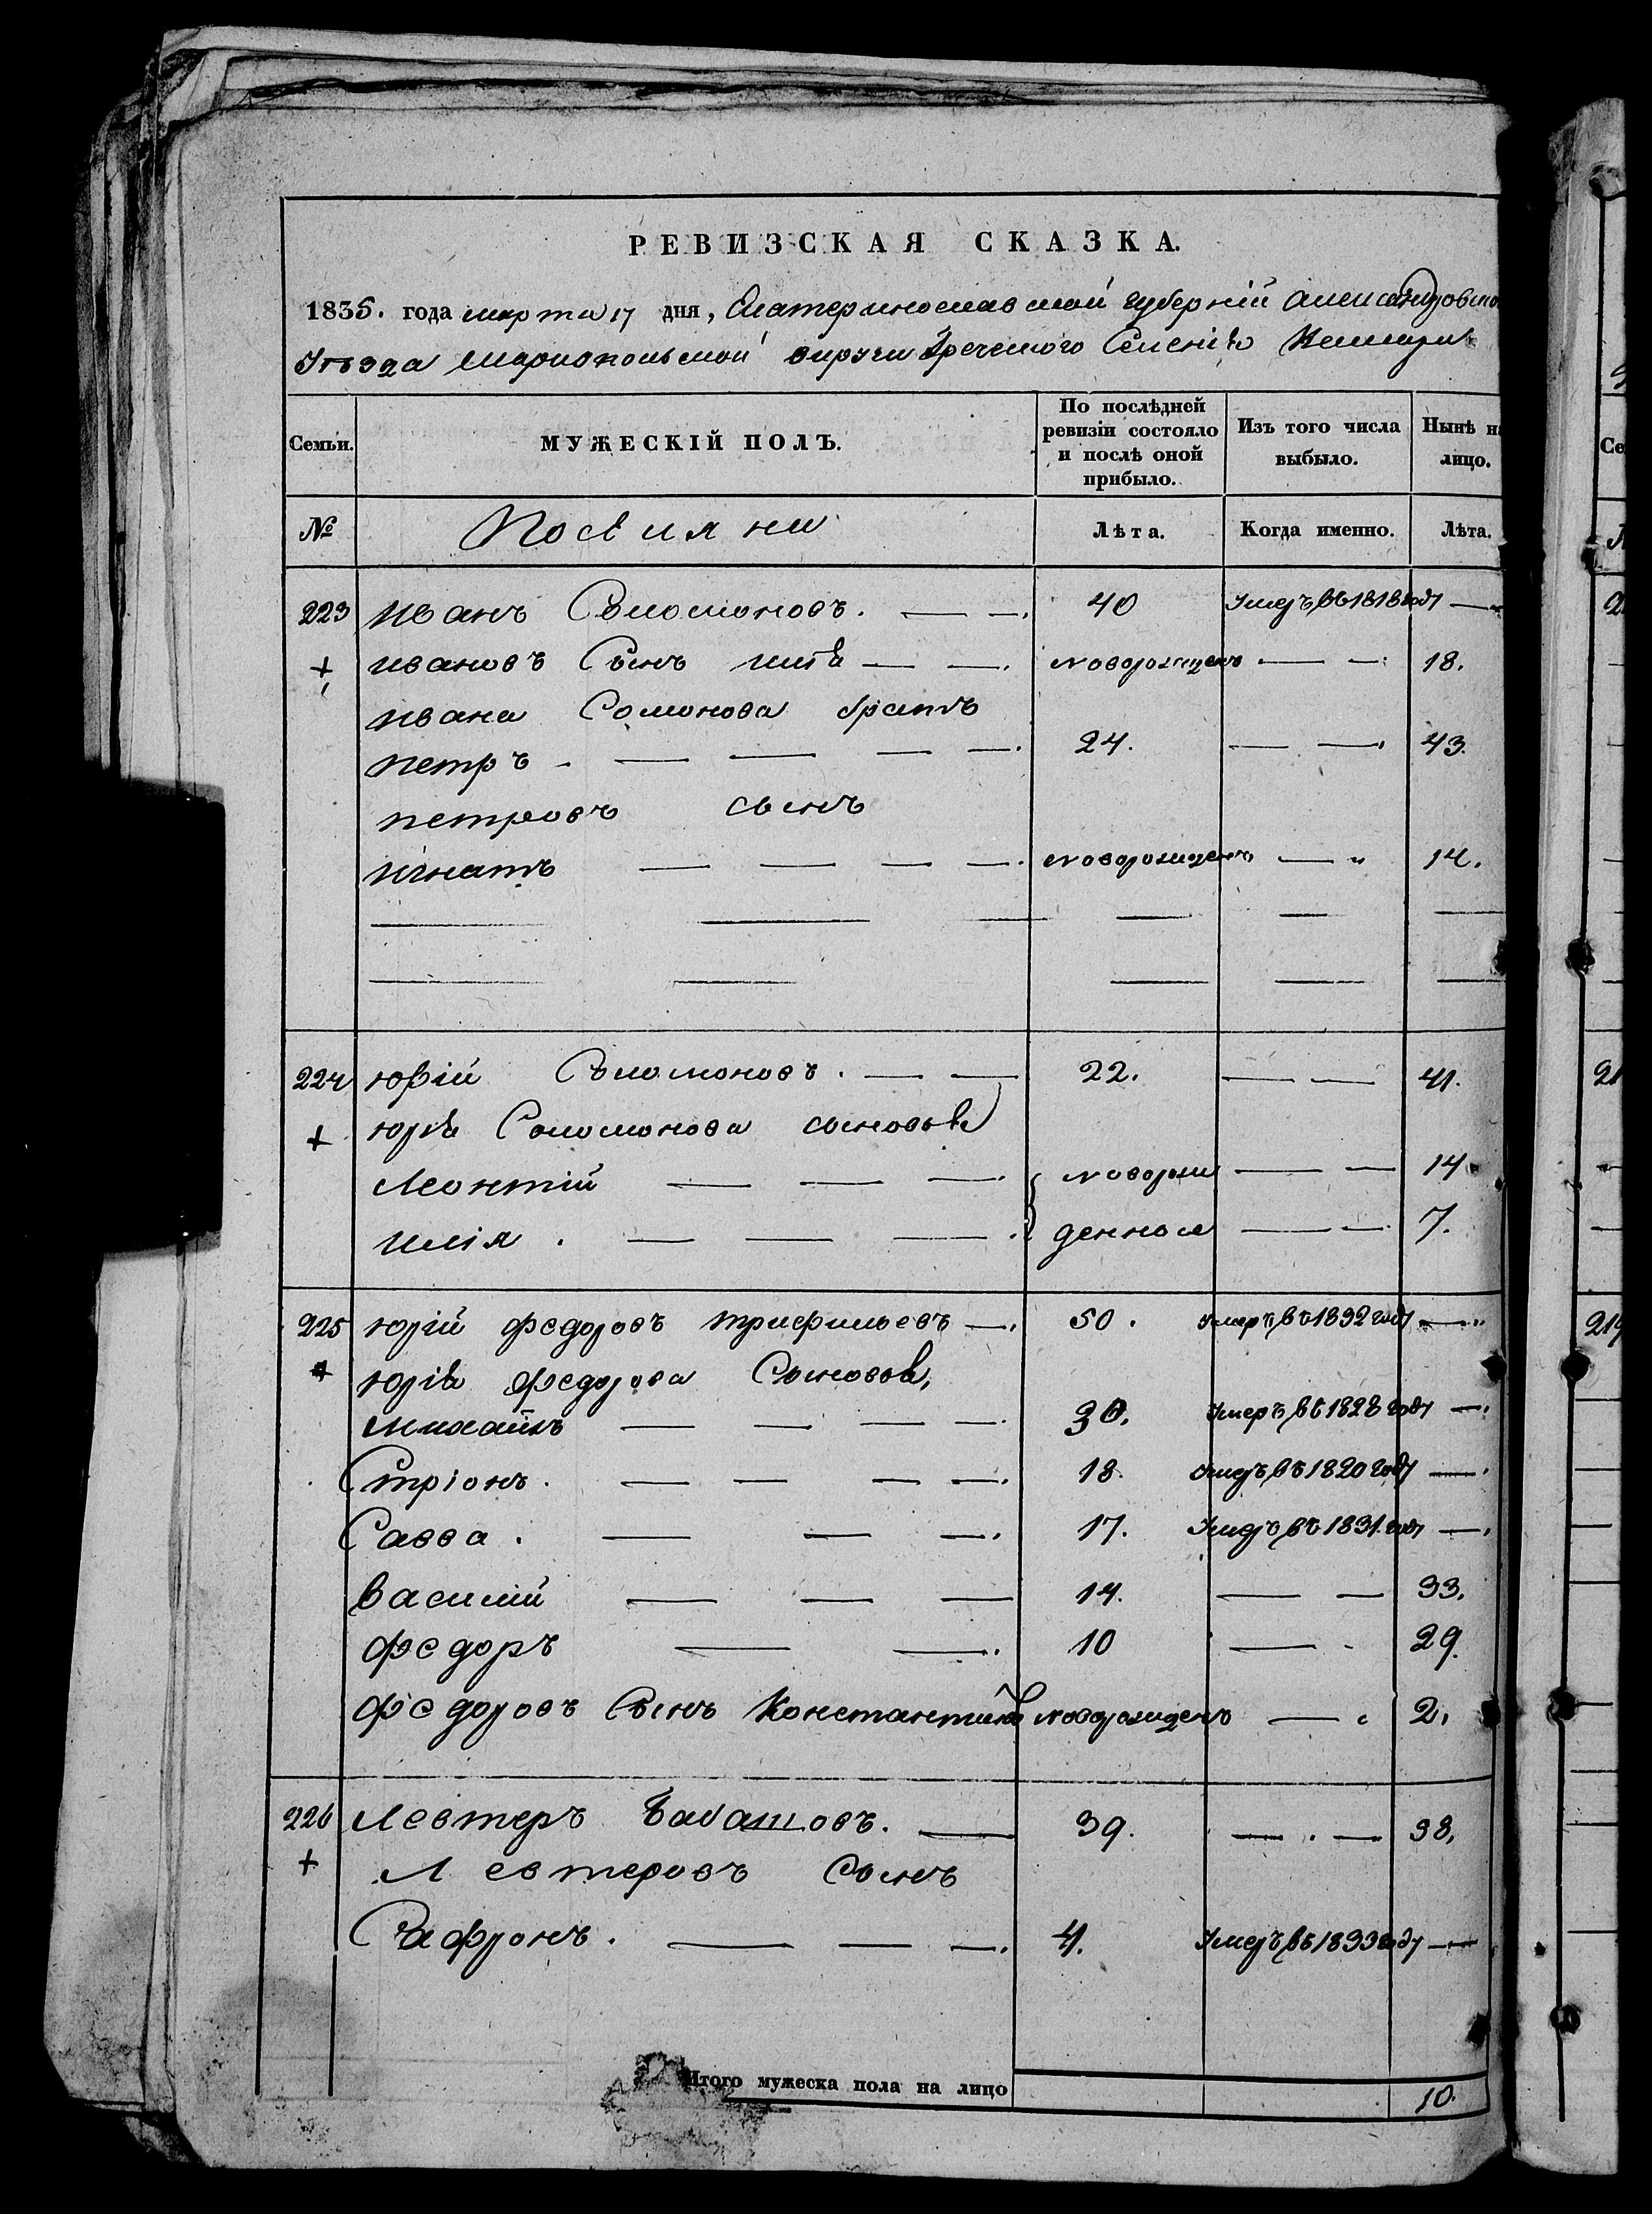 РЕВИЗСКАЯ СКАЗКА.
1835. года марта 17 дня, Екатеринославской губерніи Александровско
Уѣзда Мариопольской округи Греческого Селенія
Семьи. МУЖЕСКІЙ ПОЛЪ. По послѣдней ревизіи состояло и послѣ оной прибыло. Изъ того числа выбыло. Нынѣ на лицо.
№ Поселяни Лѣта. Когда именно. Лѣта.
223 Иванъ Соломоновъ. 40 Умеръ въ 1818 году
+ Ивановъ Сынъ Илія новорожденъ 18.
Ивана Соломонова братъ
Петръ 24. 43.
Петровъ сынъ
Игнатъ новорожденъ 14.
224 Юрій Соломоновъ. 22. 41.
+ Юрія Соломонова сыновья
Леонтій новорож 14
Илія. денные 7.
225 Юрій Федоровъ Трифильевъ 50. Умеръ въ 1832 году
+ Юрія Федорова Сыновья,
Михаилъ 30. Умеръ въ 1828 году
Стріонъ. 18. Умеръ въ 1820 году
Савва. 17. Умеръ въ 1831. году
Василій 14. 33.
Федоръ 10 29.
Федоровъ Сынъ Константинъ новорожденъ 2.
226 Левтеръ Бабашовъ. 39. 38.
+ Левтеровъ Сынъ
Сафронъ. 4. Умеръ въ 1833 году
Итого мужеска пола на лицо 10.